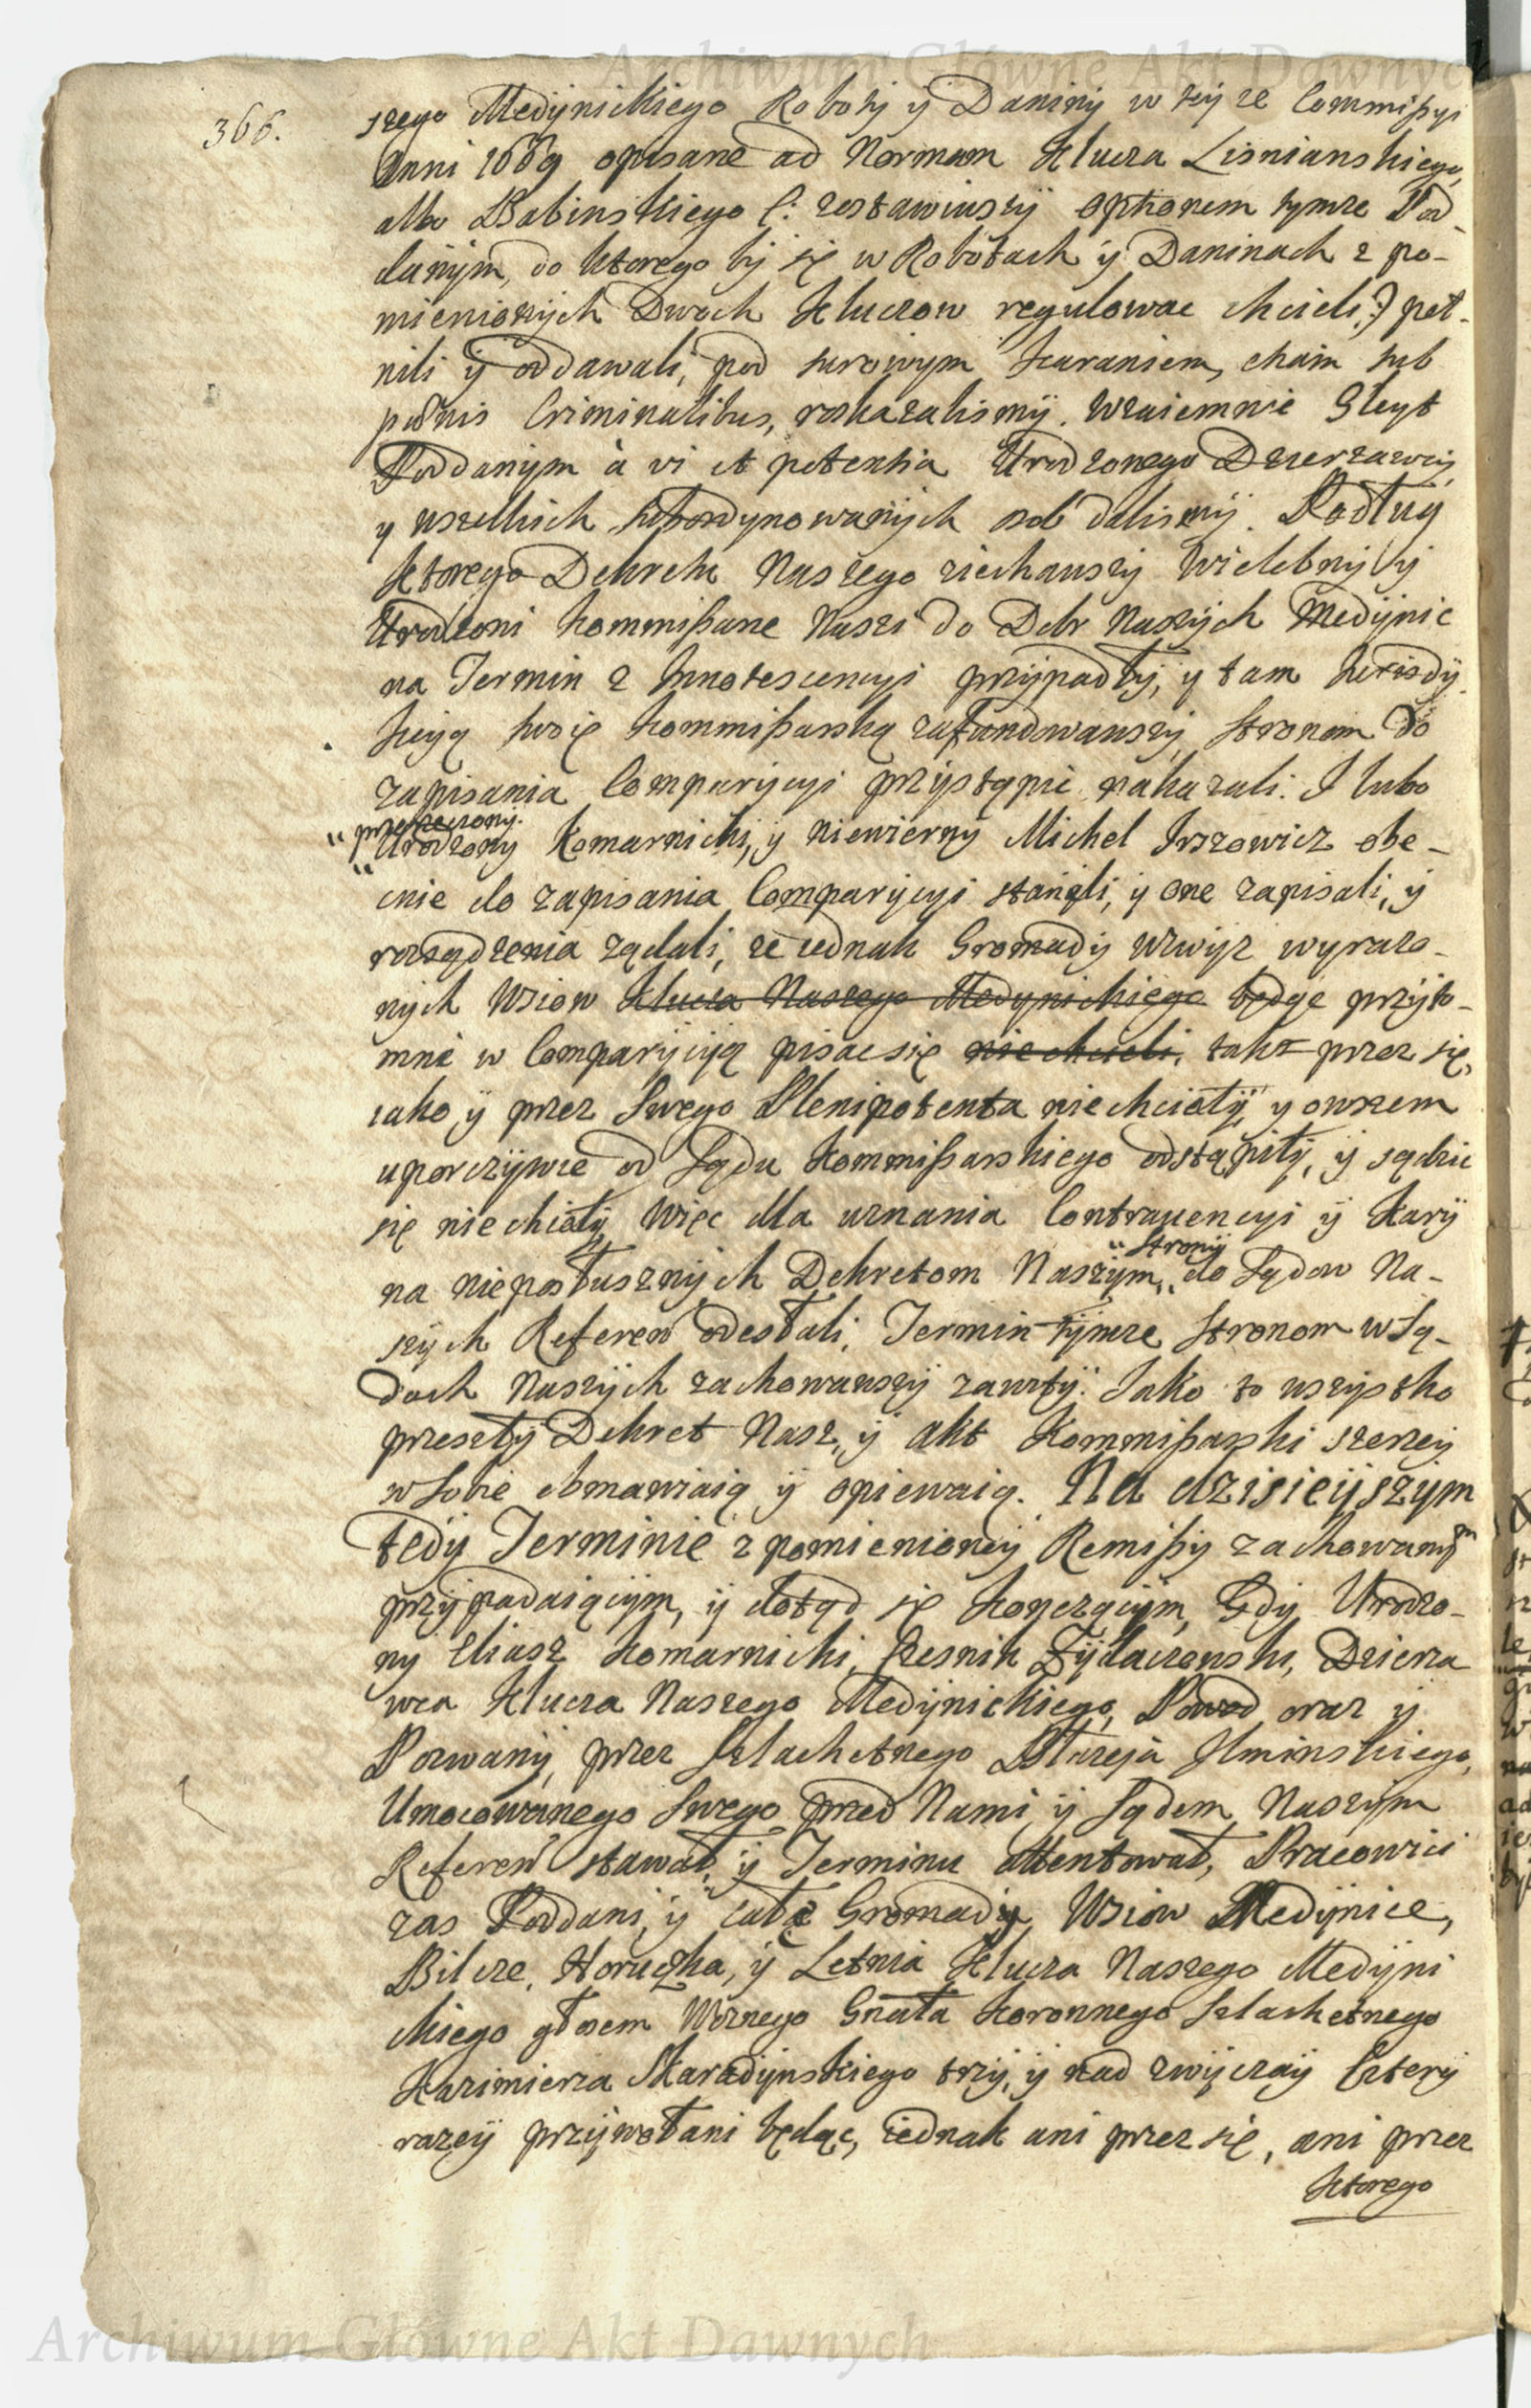 Archiwum Główne Akt Dawnych
366.
szego Medynickiego Roboty ÿ Daniny w teyze Commißyi
Anni 1669 opisane ad Normam Klucza Lisnianskiego,
albo Babinskiego (: zostawiwszÿ optionem tymze Pod-
danÿm, do ktorego bÿ się w Robotach ÿ Daninach z po-
mienionÿch Dwoch Kluczow regulowac chcieli:) peł-
nili ÿ oddawali, pod surowym karaniem, etiam sub
pœnis Criminalibus, roskazalismÿ. Wzaiemnie Gleyt
Poddanym à vi et potentia Urodzonego Dzierzawcÿ
y wszelkich subordynowanÿch osob dalismÿ. Podług
ktorego Dekretu Naszego ziechawszÿ Wielebnÿ ÿ
Urodzoni Kommißarze Nasi do Dobr Naszÿch Medÿnic
na Termin z Innotescencyi przÿpadłÿ, y tam Jurisdÿ-
kcyą swoię Kommißarską zafundowawszÿ Stronom do
zapisania Comparÿcyi przÿstąpic nakazali. I lubo
przerzeczony
Urodzony Komarnicki, ÿ niewierny Michel Irszowicz obe-
cnie do zapisania Comparÿcyi stanęli, ÿ one zapisali, ÿ
rozsądzenia ządali, ze iednak Gromady wzwÿz wyrazo-
nÿch Wsiow Klucza Naszego Medynickiego będąc przÿto-
mne w Comparÿcyą pisac się nie chcieli, tak przez się,
iako ÿ przez Swego Plenipotenta nie chciałÿ, y owszem
uporczÿwie od Sądu Kommißarskiego odstąpiłÿ, ÿ sądzic
się nie chciałÿ, Więc dla uznania Contrauencyi ÿ Karÿ
Stronÿ
na nieposłusznÿch Dekretom Naszÿm, do Sądow Na-
szÿch Referen odesłali, Termin tÿmze Stronom w Są-
dach Naszÿch zachowawszÿ zawitÿ. Jako to wszÿstko
przeszłÿ Dekret Nasz, ÿ akt Kommißarski szerzeÿ
w Sobie obmawiaią ÿ opiewaią. Na dzisieÿszÿm
tedÿ Terminie z pomienioneÿ Remißÿ zachowanÿm
przÿpadaiącÿm, ÿ dotąd się konczącÿm, Gdÿ Urodzo-
ny Eliasz Komarnicki, Czesnik Zÿdaczowski, Dzierza
wca Klucza Naszego Medÿnickiego, Powod oraz ÿ
Pozwany, przez Szlachetnego Błazeja Ilminskiego,
Umocowanego Swego przed Nami ÿ Sądem Naszÿm
Referen stawał, ÿ Terminu attentował, Pracowici
zas Poddani, ÿ całe Gromadÿ Wsiow Medÿnice,
Bilcze, Horucka, ÿ Letnia Klucza Naszego Medÿni
ckiego głosem Woznego Gnała Koronnego Szlachetnego
Kazimierza Skaradÿnskiego trzÿ, ÿ nad zwÿczaÿ Czterÿ
razeÿ przÿwołani będąc, iednak ani przez się, ani przez
ktorego
Archiwum Główne Akt Dawnych